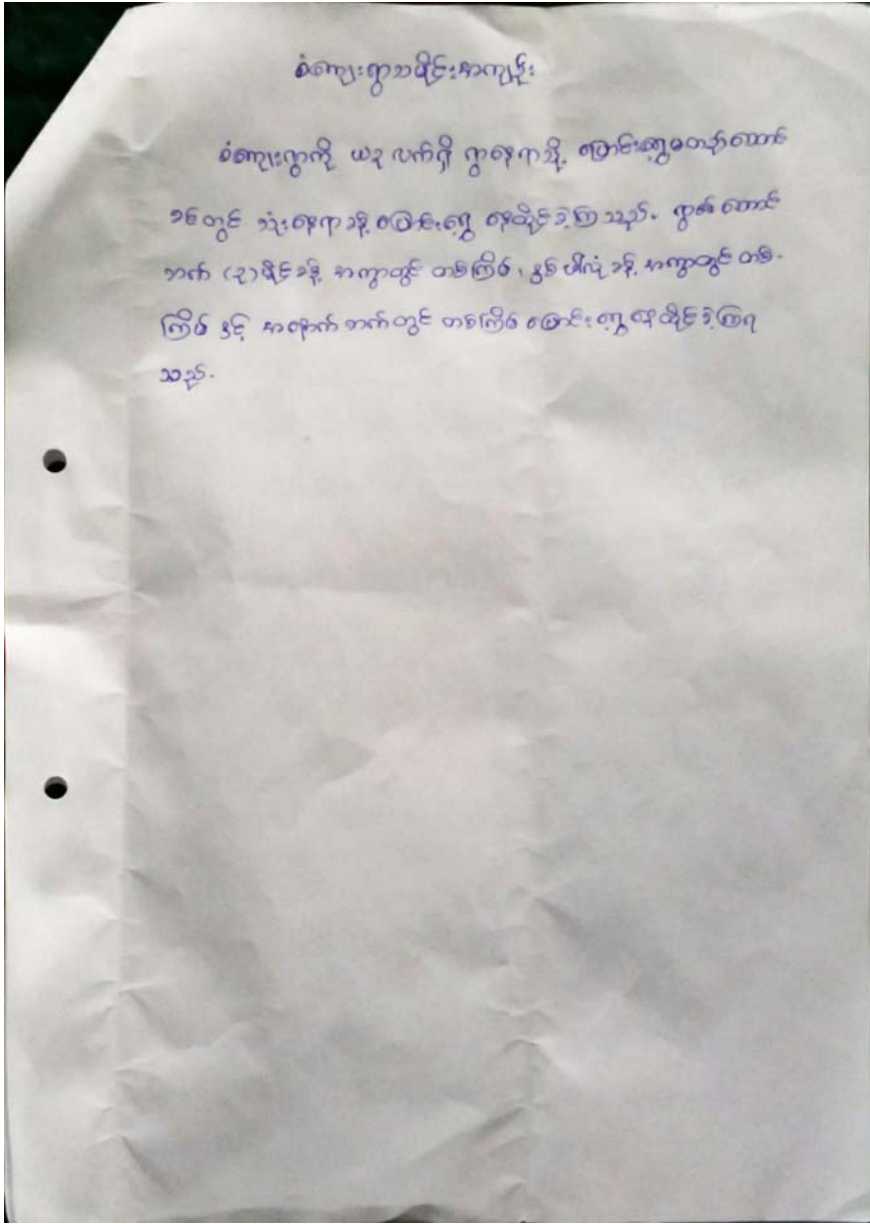 စံကျေးရွာသမိုင်းအကျဉ်း
စံကျေးရွာကို ယခု လက်ရှိ ရွာနေရာသို့ မပြောင်းရွှေ့မတည်ထောင်
ခင်တွင် သုံးနေရာခန့် ပြောင်းရွှေ့ နေထိုင်ခဲ့ကြသည်. ရွာ၏ တောင်
ဘက် (၃)မိုင်ခန့် အကွာတွင် တစ်ကြိမ်, နှစ်ဖါလုံခန့် အကွာတွင် တစ်-
ကြိမ် နှင့် အနောက်ဘက်တွင် တစ်ကြိမ် ပြောင်းရွှေ့ နေထိုင်ခဲ့ကြရ
သည်.